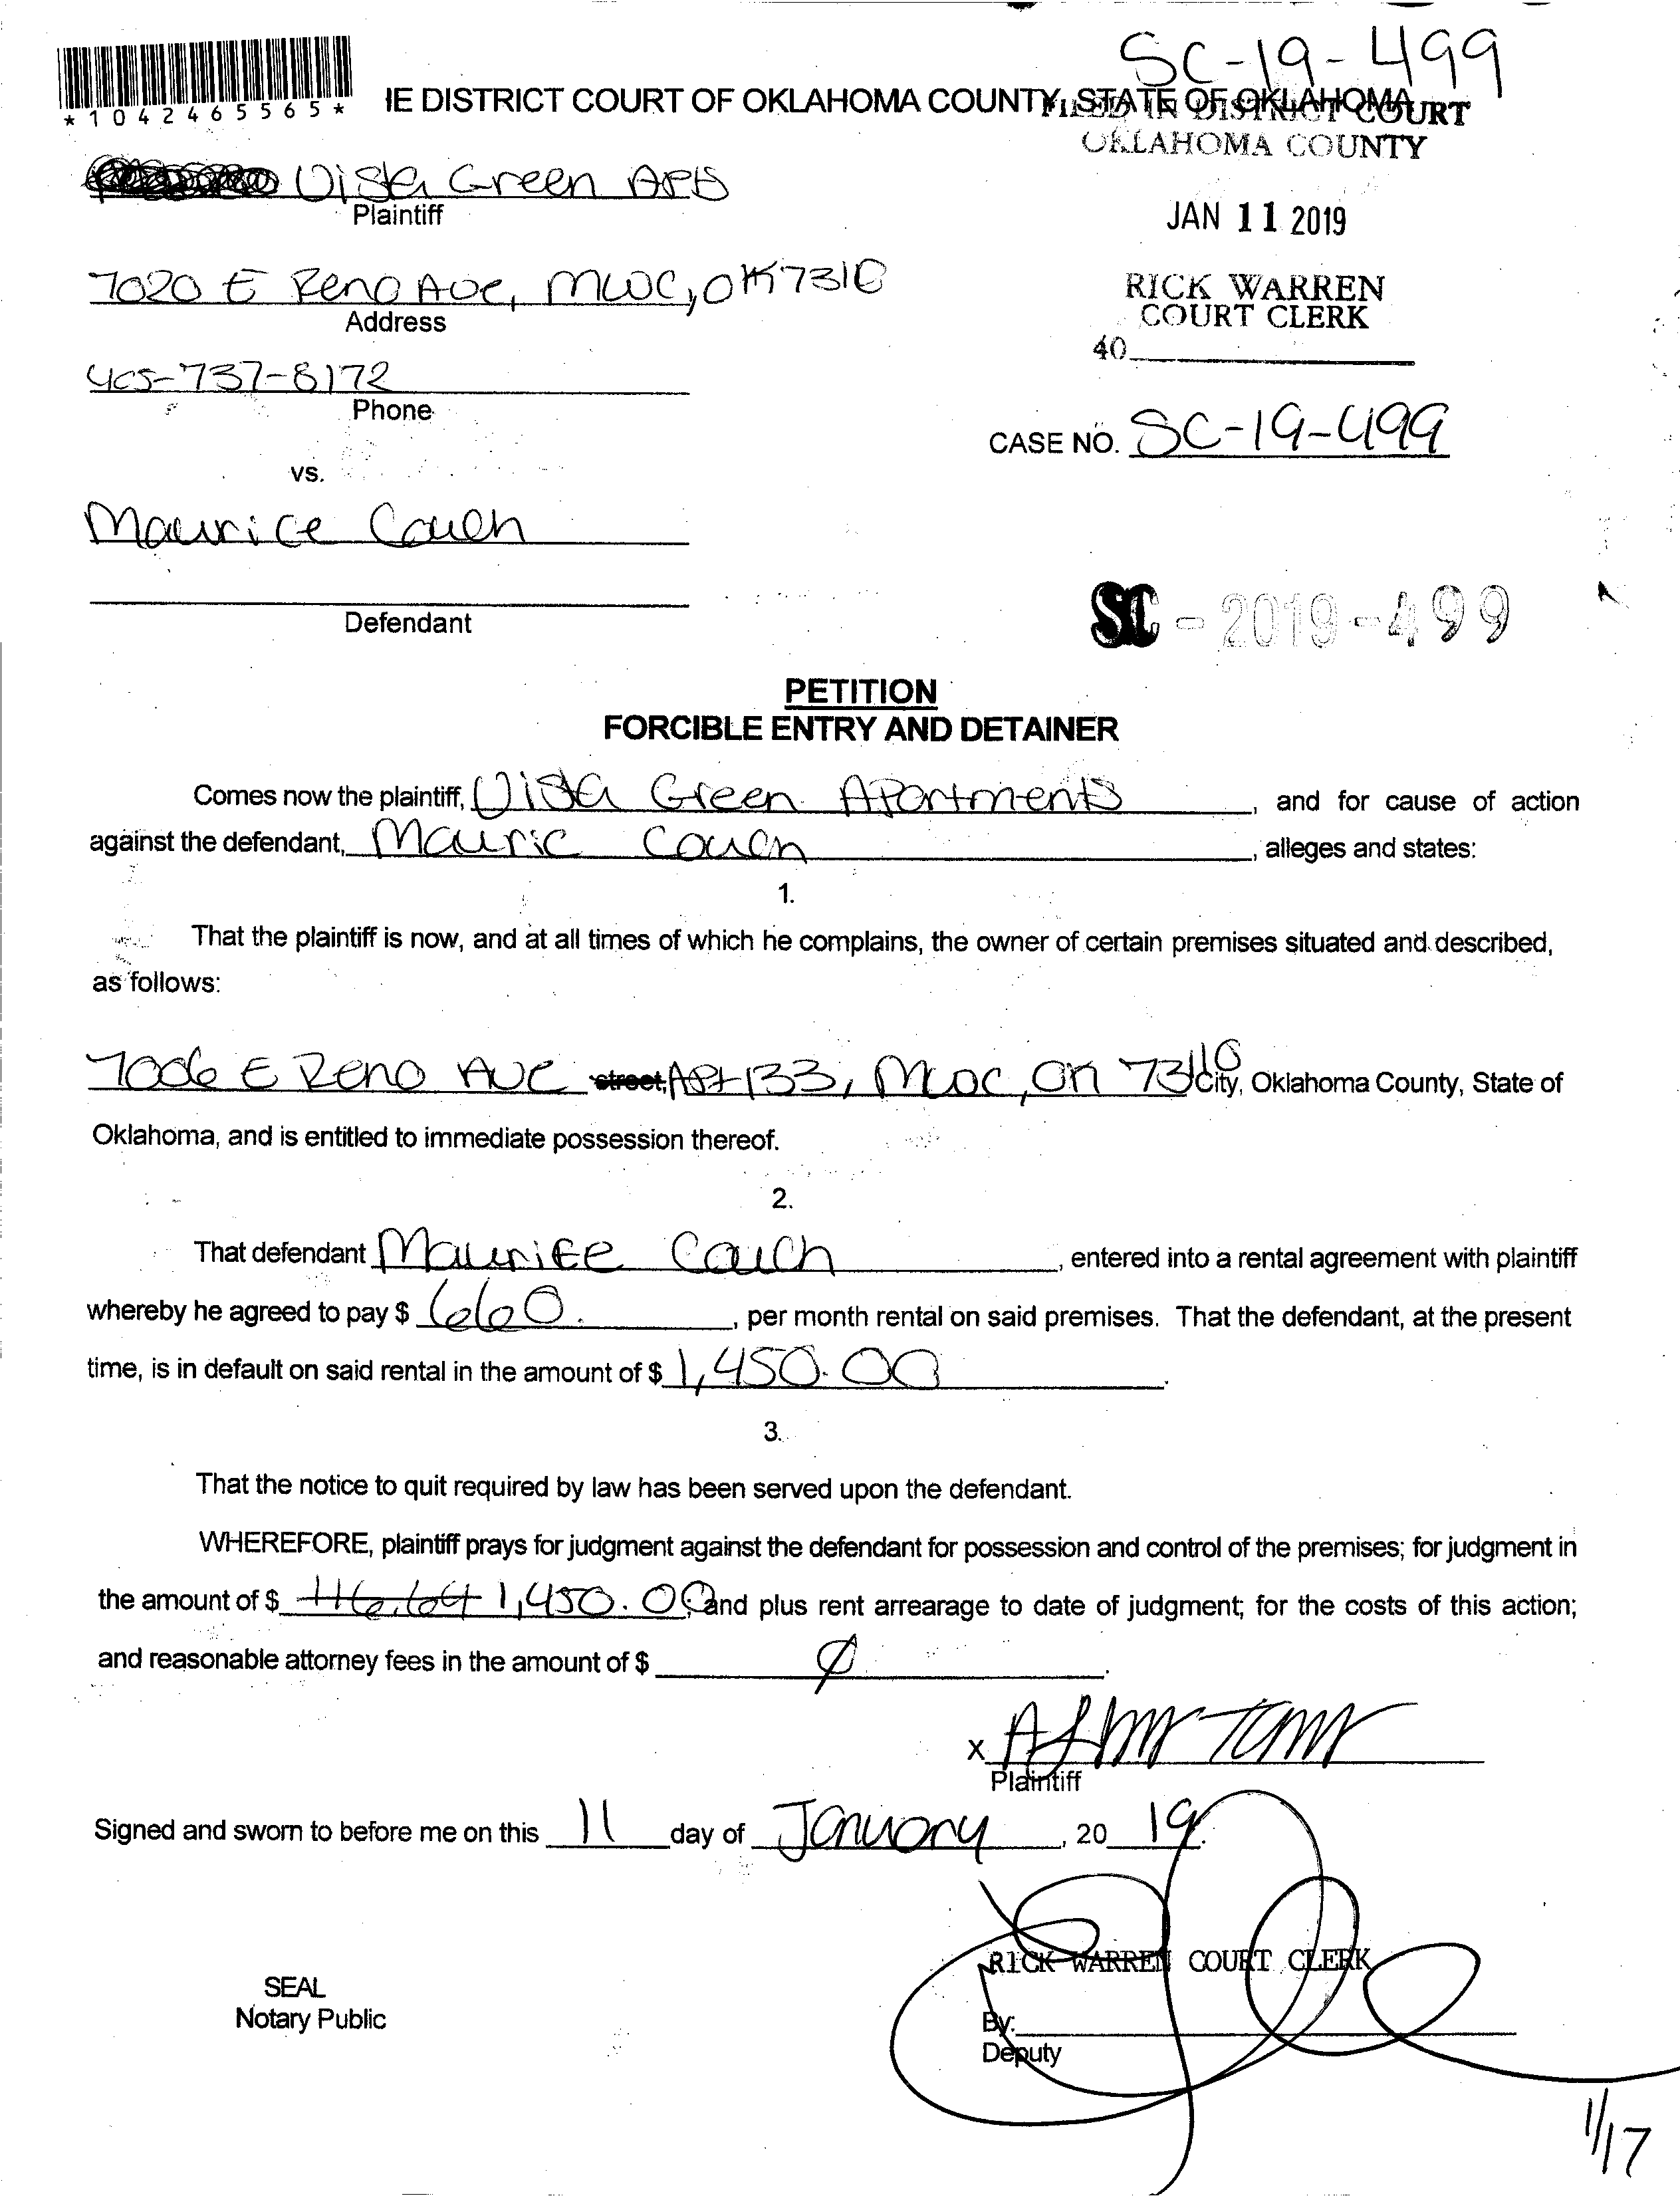 SC-19-499
*1042465565*
IE DISTRICT COURT OF OKLAHOMA COUNTY, STATE OF OKLAHOMA
FILED IN DISTRICT COURT
OKLAHOMA COUNTY
Vista Green Apts
Plaintiff
JAN 11 2019
7020 E Reno Ave, MWC, OK 73110
Address
RICK WARREN
COURT CLERK
40
405-737-8172
Phone
CASE NO. SC-19-499
vs.
Maurice Couch
Defendant
SC - 2019 - 499
PETITION
FORCIBLE ENTRY AND DETAINER
Comes now the plaintiff, Vista Green Apartments, and for cause of action
against the defendant, Mauric Couch, alleges and states:
1.
That the plaintiff is now, and at all times of which he complains, the owner of certain premises situated and described,
as follows:
7006 E Reno Ave street, Apt 133, MWC, OK 73110 City, Oklahoma County, State of
Oklahoma, and is entitled to immediate possession thereof.
2.
That defendant Maurice Couch, entered into a rental agreement with plaintiff
whereby he agreed to pay $ 660., per month rental on said premises. That the defendant, at the present
time, is in default on said rental in the amount of $ 1,450.00.
3.
That the notice to quit required by law has been served upon the defendant.
WHEREFORE, plaintiff prays for judgment against the defendant for possession and control of the premises; for judgment in
the amount of $ 1,450.00, and plus rent arrearage to date of judgment; for the costs of this action;
and reasonable attorney fees in the amount of $ ∅.
X
Plaintiff
Signed and sworn to before me on this 11 day of January, 2019.
RICK WARREN COURT CLERK
SEAL
Notary Public
By:
Deputy
1/17